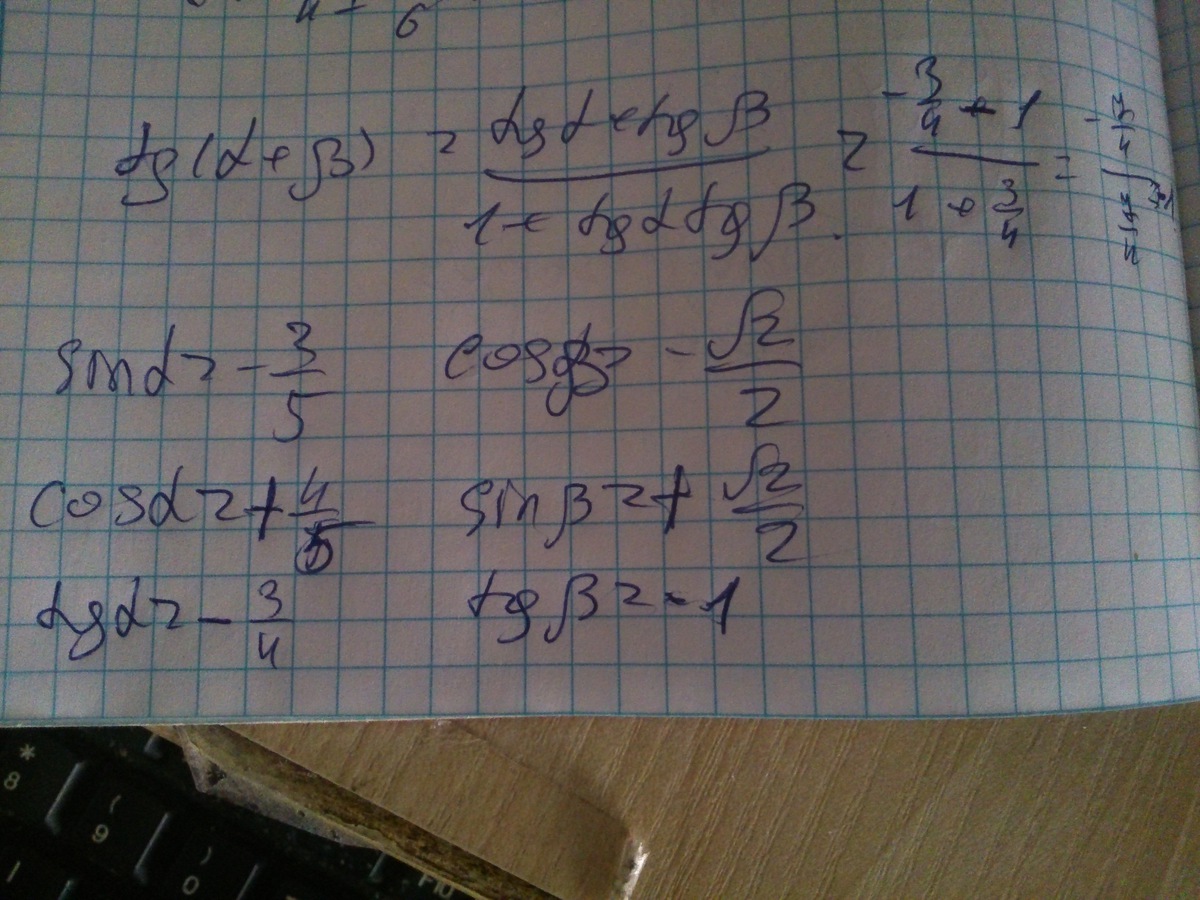 4 - 6
tg(α+β) = (tgα + tgβ)/(1 + tgα tgβ) = (-3/4 - 1)/(1 + 3/4) = (-7/4)/(7/4) = -1
sinα = -3/5 cosβ = -√2/2
cosα = +4/5 sinβ = +√2/2
tgα = -3/4 tgβ = -1
* 8
( 9
) 0
F10